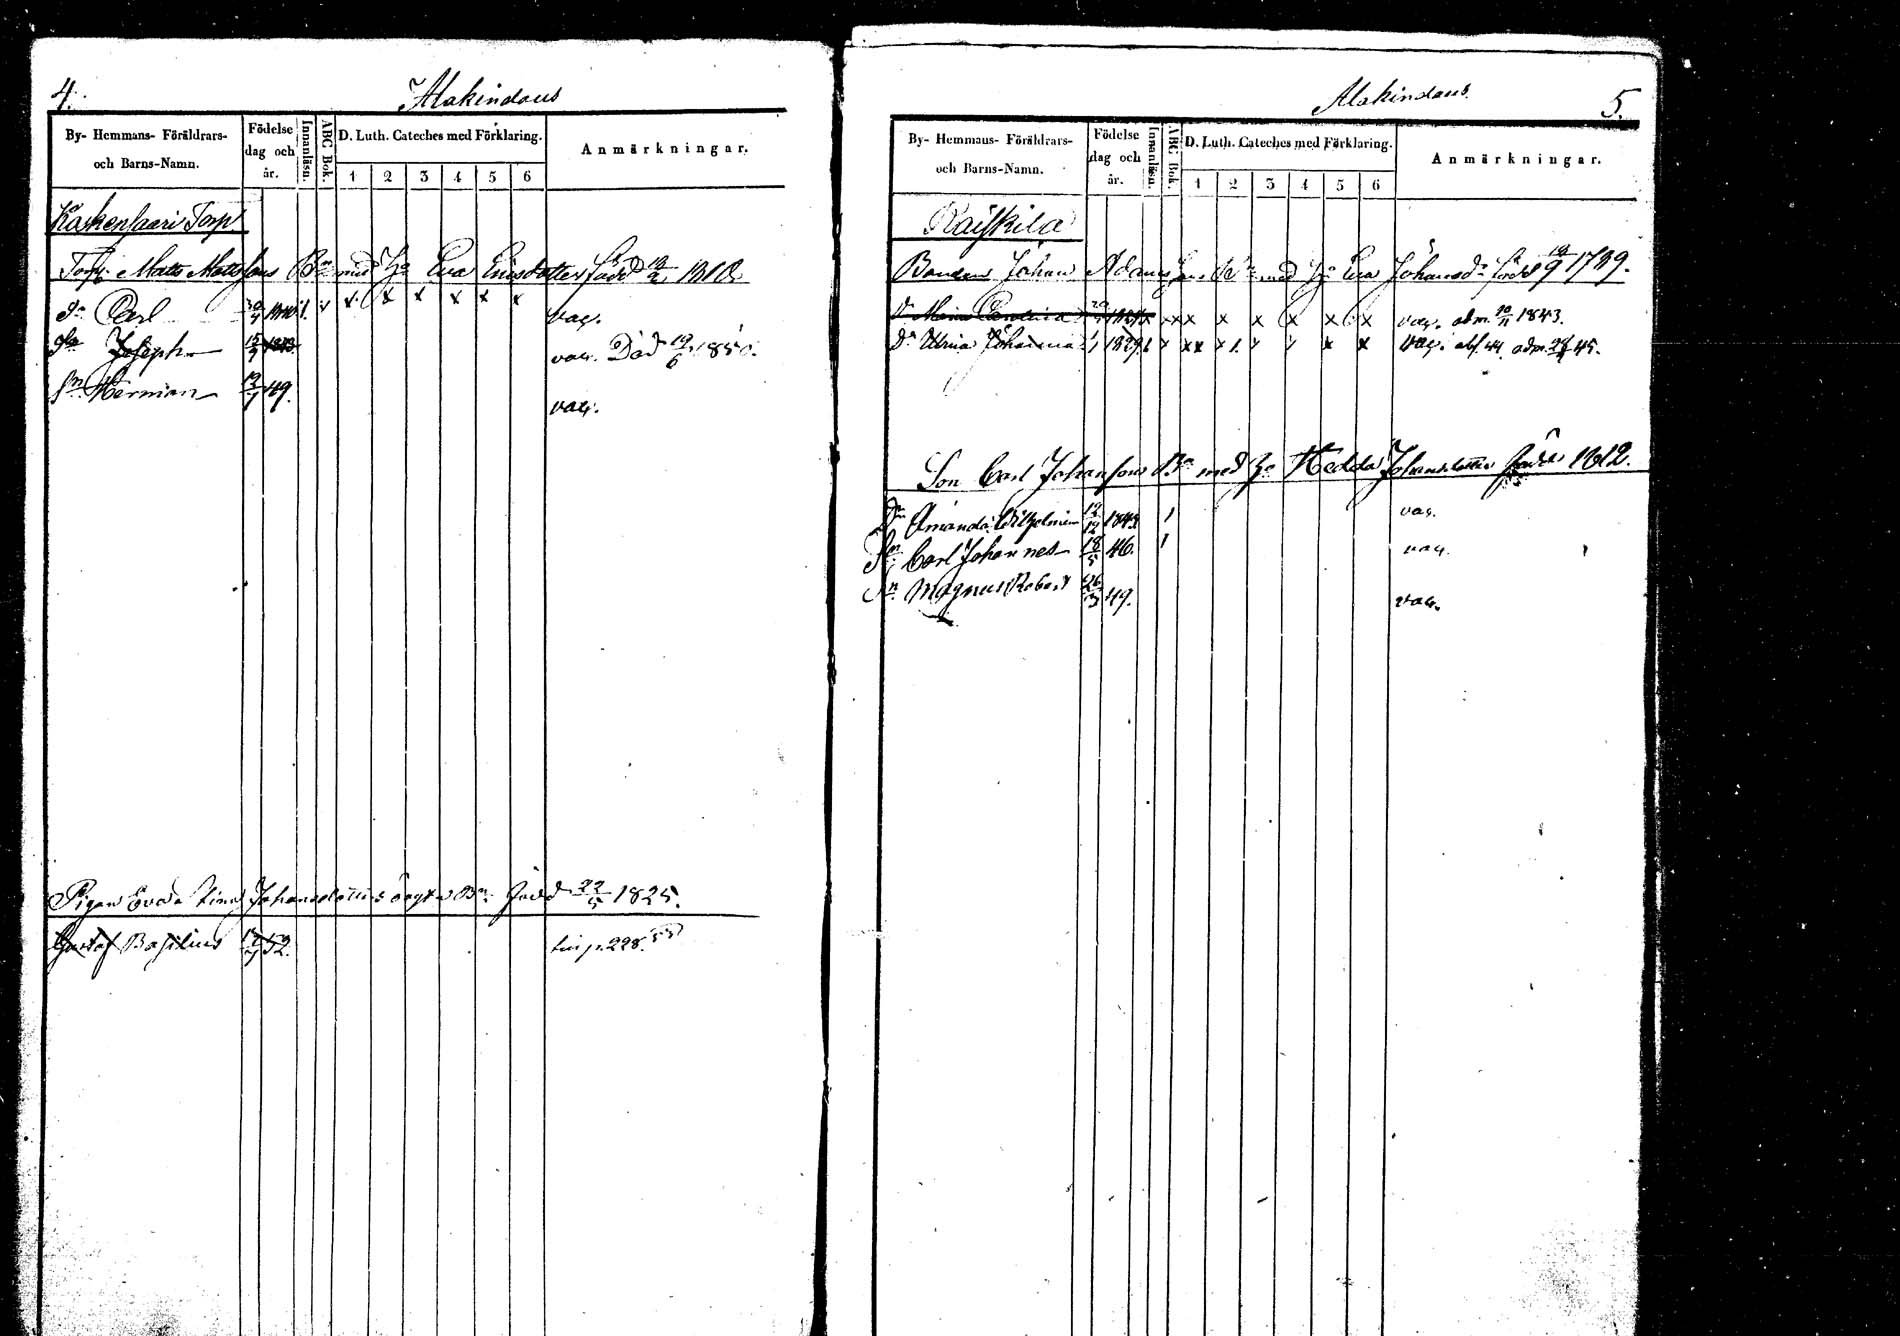 4.
Alakindaus
By- Hemmans- Föräldrars- och Barns-Namn.
Födelse dag och år.
Innanläsn.
ABC Bok.
D. Luth. Cateches med Förklaring.
1 2 3 4 5 6
Anmärkningar.
Kaskensaari Torp
Torp. Matts Mattssons Bn med Ho Eva Ericsdotter född 1818
Sn Carl x x x x x x vac.
Sn Joseph 15/9 1843 vac. Död 19/6 1850.
Sn Herman 49. vac.
Pigan Eva Stina Johansdotters oägta Bn född 22/5 1825.
Gustaf Basilius 52. 228.
Alakindaus.
5.
By- Hemmans- Föräldrars- och Barns-Namn.
Födelse dag och år.
Innanläsn.
ABC Bok.
D. Luth. Cateches med Förklaring.
1 2 3 4 5 6
Anmärkningar.
Raiskila
Bonden Johan Adamssons Bn med Ho Eva Johansdr född 1789.
x x x x x x vac. adm. 10/11 1843.
Dr Ulrica Johanna 1829 vac. abs. 44. adm. 45.
Son Carl Johanssons Bn med Ho Hedda Johansdotter född 1812.
Dr Amanda Wilhelmina 12/12 1843 1 vac.
Sn Carl Johannes 18/5 46. 1 vac.
Sn Magnus Robert 26/3 49. vac.